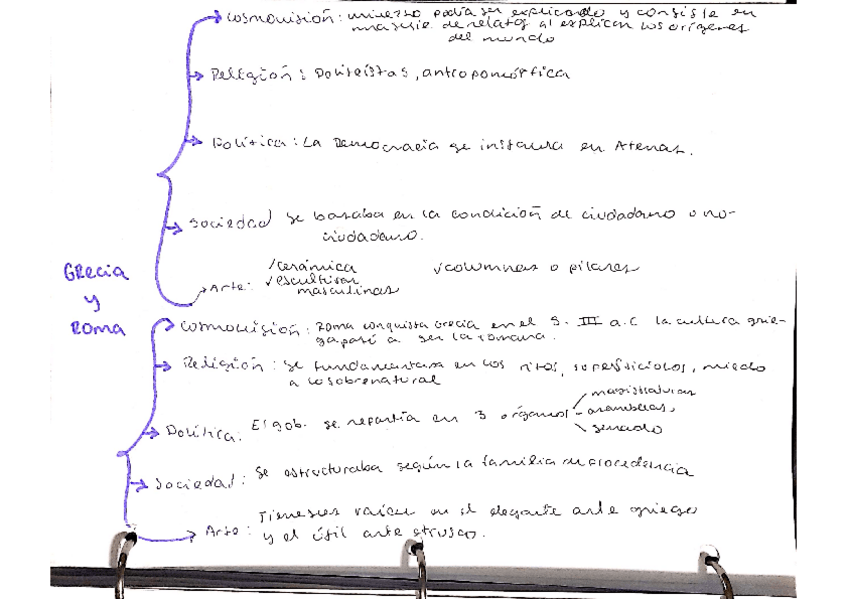 Cosmovisión: universo podía ser explicado y consiste en
masserie de relatos al explican los orígenes
del mundo
Religión: Politeístas, antropomórfica
Política: La Democracia se instaura en Atenas.
Sociedad se basaba en la condición de ciudadano o no-
ciudadano.
Arte: ✓cerámica ✓columnas o pilares
✓escultura
masculinas
Grecia
y
Roma
Cosmovisión: Roma conquista Grecia en el S. III a.C la cultura grie-
ga pasó a ser la romana.
Religión: se fundamentaba en los ritos, supersticiolos, miedo
a lo sobrenatural
Política: El gob. se repartía en 3 órganos magistraturas
asambleas,
senado
Sociedad: se estructuraba según la familia procedencia
Arte: Tiene sus raíces en el elegante arte griego
y el útil arte etrusco.